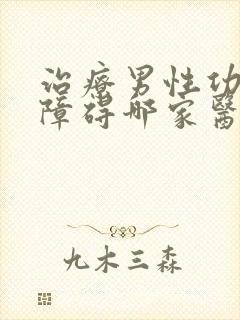 治療男性功
障碍哪家醫
九木三森